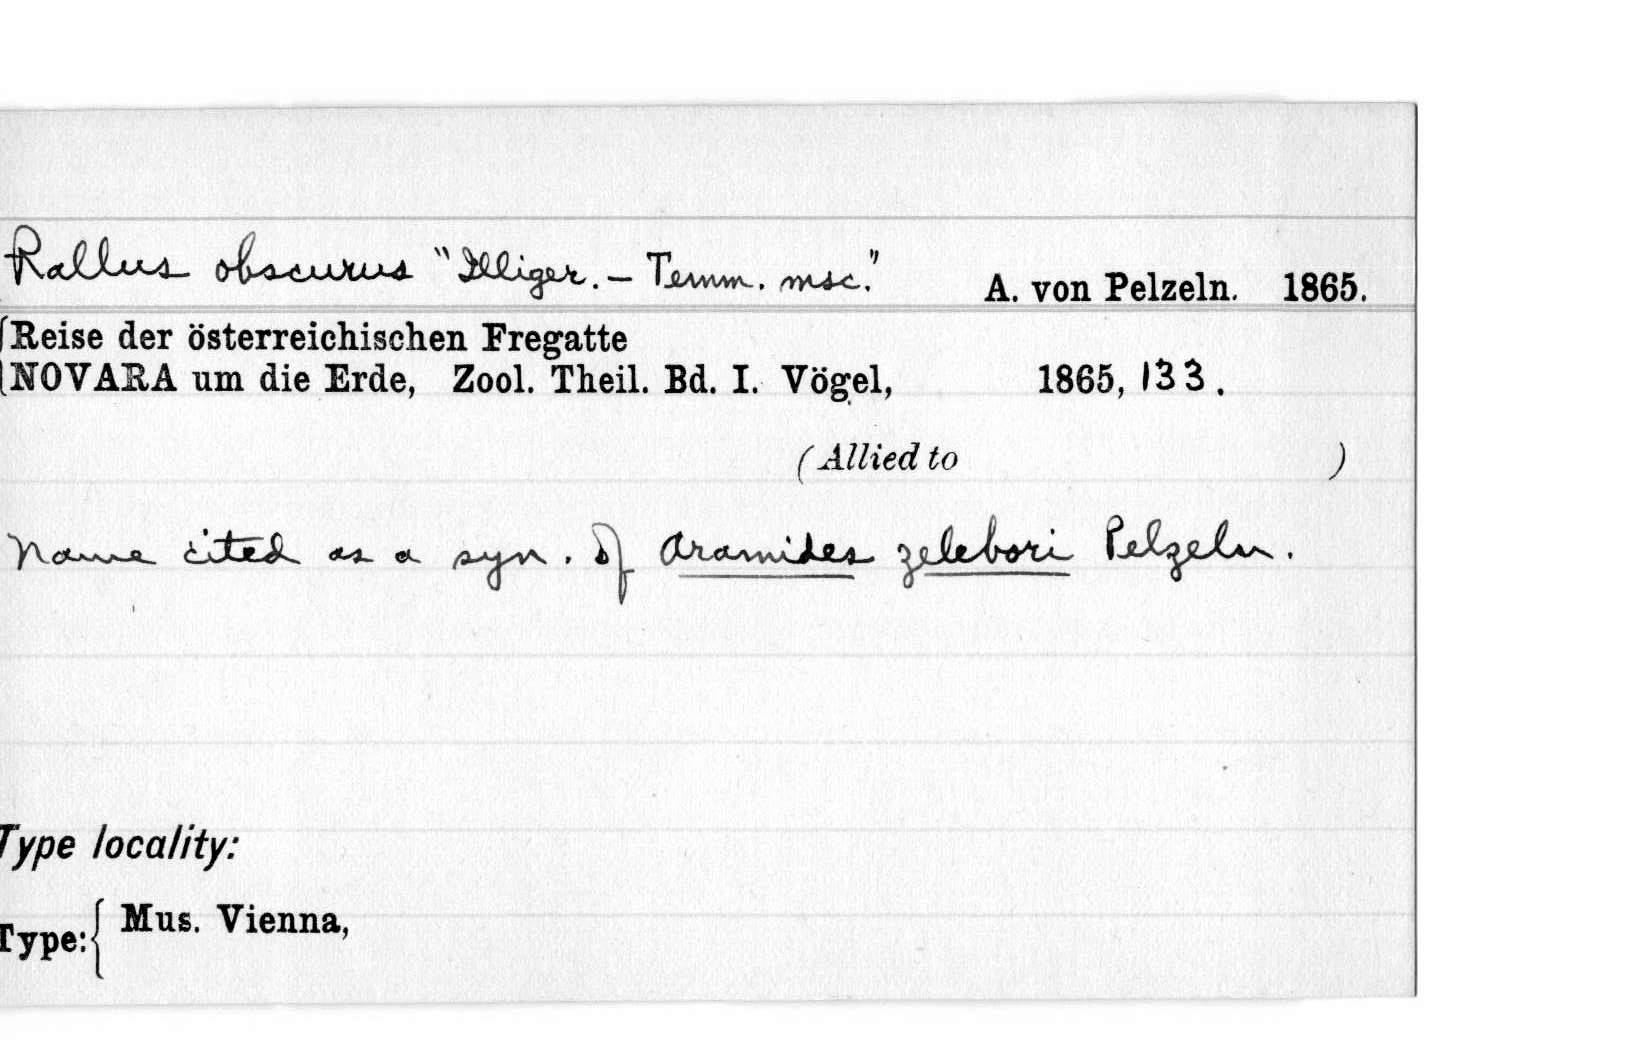 Rallus obscurus "Illiger. – Temm. msc." A. von Pelzeln. 1865.
Reise der österreichischen Fregatte
NOVARA um die Erde, Zool. Theil. Bd. I. Vögel, 1865, 133.
(Allied to )
Name cited as a syn. of Aramides zelebori Pelzeln.
Type locality:
Type: { Mus. Vienna,